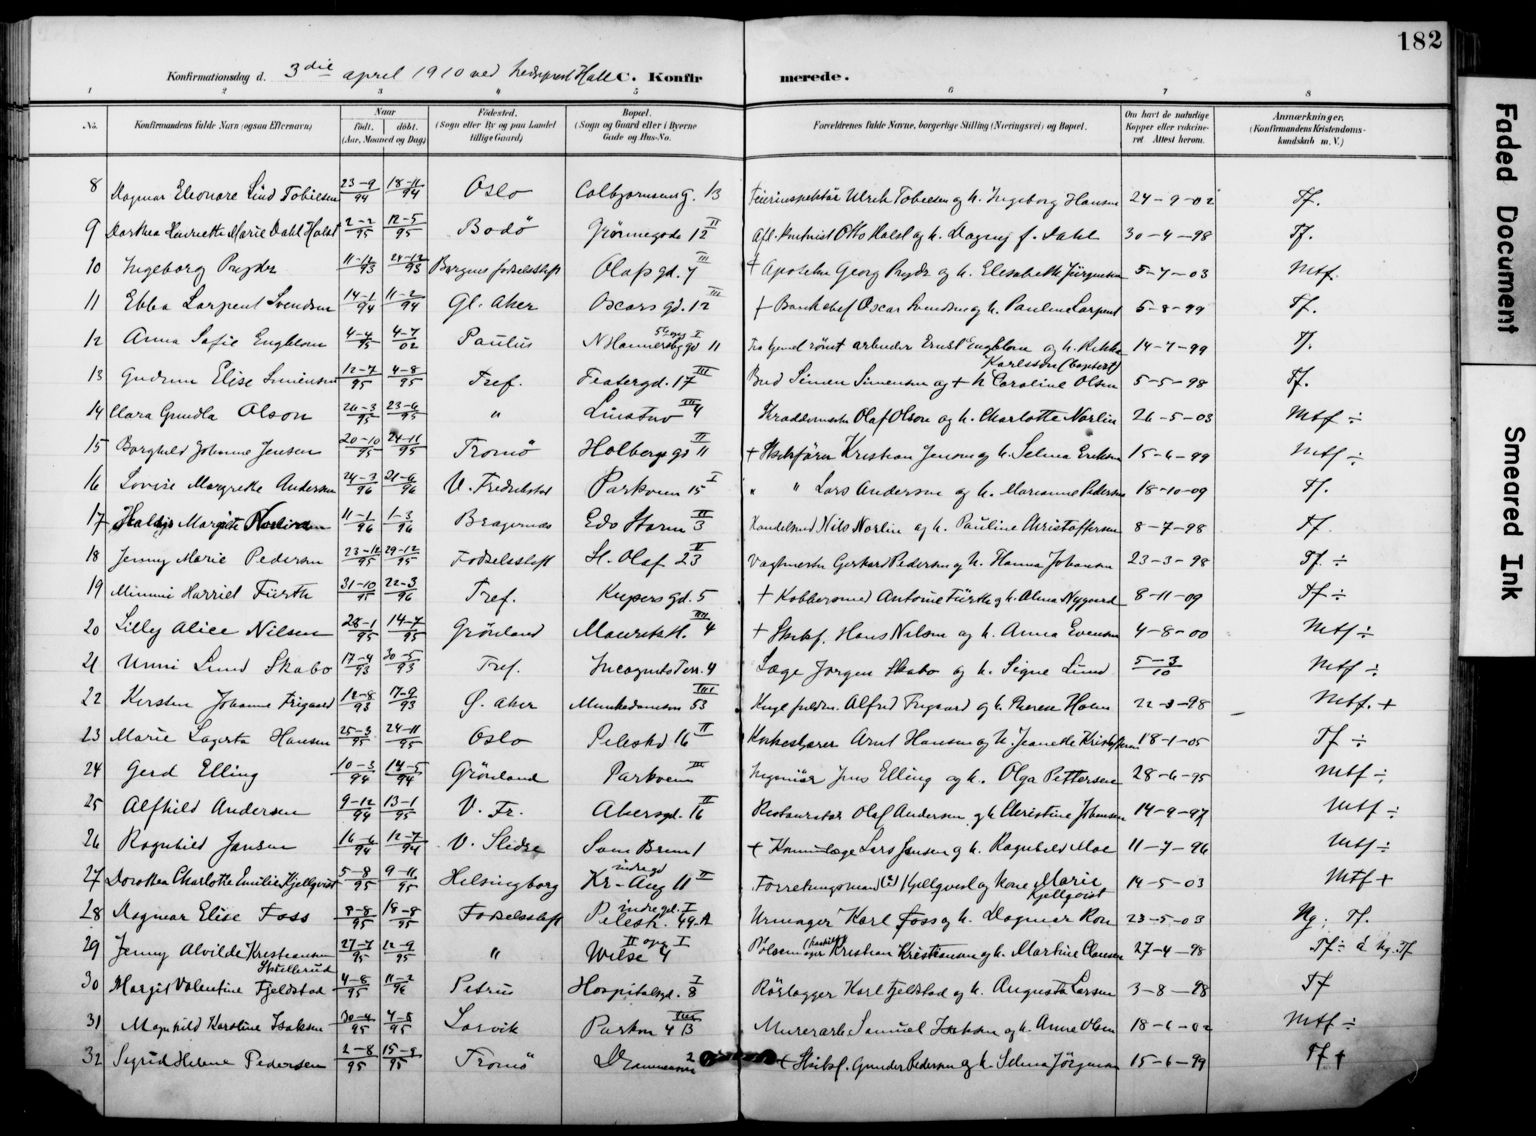 182
Konfirmationsdag d. 3die april 1910 ved Hall C. Konfirmerede.
1 2 3 4 5 6 7 8
No. Konfirmandens fulde Navn (ogsaa Efternavn) Naar født. døbt. (Aar, Maaned og Dag) Fødested. (Sogn eller By og paa Landet tillige Gaard) Bopæl. (Sogn og Gaard eller i Byerne Gade og Hus-No. Forældrenes fulde Navne, borgerlige Stilling (Næringsvei) og Bopæl. Om havt de naturlige Kopper eller vaccineret Attest herom. Anmærkninger. (Konfirmandens Kristendomskundskab m. V.)
8 Dagmar Eleonore Lind Tobiesen 23-9/94 18-11/94 Oslo Colbjørnsens g. 13 Feierinspektør Ulrik Tobiesen og h. Ingeborg Hansen 24-9-02 Tf.
9 Dorthea Henriette Marie Dahl Holst 2-2/95 12-5/95 Bodö Grönnegade 12 II Otto Holst og h. Dagny f. Dahl 30-4-98 Tf.
10 Ingeborg 11-12/93 Bergens fødselsstift Olafsgd. 7 III + Apoteker Georg og h. Elisabeth Jürgensen 5-7-03 Mtf.
11 Ebba Larpent Svendsen 14-1/94 11-2/94 Gl. Aker Oscars gd. 12 III + Bankchef Oscar Svendsen og h. Pauline Larpent 5-8-99 Tf.
12 Anna Sofie Engblom 4-4/95 4-7/02 Paulus N Hammersbg gd 11 arbeider Ernst Engblom og h. Rikke Karlsson (baptist) 14-7-99 Tf.
13 Gudrun Elise Simensen 12-7/95 4-8/95 Tref. Teatergd. 17 III Bud Simen Simensen og + h Caroline Olsen 5-5-98 Tf.
14 Clara Gunda Olson 26-3/95 23-6/95 " 4 Olaf Olson og h. Charlotte Norlin 26-5-03 Mtf ÷
15 Borghild Johanne Jensen 20-10/95 24-11/95 Tromö Holbergs gd 11 II + Skibsfører Kristian Jensen og h. Selma Eriksen 15-6-99 Mtf ÷
16 Lovise Margrethe Andersen 24-3/96 21-6/96 V. Fredrikstad Parkveien 15 I " " Lars Andersen og h. Marianne Pedersen 18-10-09 Tf.
17 Margit 11-1/96 1-3/96 Bragernæs Edv Storm 3 II Nils Norlin og h. Pauline Christoffersen 8-7-98 Tf
18 Jenny Marie Pedersen 23-12/95 29-12/95 Fødselsstift St. Olaf 23 II Vagtmester Gerhard Pedersen og h. Hanna Johansen 23-3-98 Tf. ÷
19 Mimmi Harriet Fürth 31-10/95 22-3/96 Tref. Keysers gd. 5 + Kobbersmed Antoine Fürth og h. Alma Nygaard 8-11-09 Tf ÷
20 Lilly Alice Nilsen 28-1/95 14-7/95 Grönland 4 + Skibsf. Hans Nilsen og h. Anna Evensen 4-8-00 Mtf ÷
21 Unni Lund Skabo 17-4/93 30-5/93 Tref. Incognito Terr. 4 Læge Jørgen Skabo og h. Signe Lund 5-3/10 Mtf ÷
22 Kirsten Johanne Frigaard 12-8/93 17-9/93 Ø. Aker Munkedamsvn 53 IIII Alfred Frigaard og h. Holm 22-3-98 Mtf. +
23 Marie Lagerta Hansen 25-3/95 24-11/95 Oslo Pilestrd 16 II Arnt Hansen og h. Jeanette Kristoffersen 18-1-05 Tf ÷
24 Gerd Elling 10-3/94 14-5/94 Grönland Parkveien III Ingeniör Jens Elling og h. Olga Pettersen 28-6-95 Mtf ÷
25 Alfhild Andersen 9-12/94 13-1/95 V. Fr. Akersgd. 16 II Restauratør Olaf Andersen og h Christine Johansen 14-9-97 Mtf ÷
26 Ragnhild Jansen 16-6/94 12-7/94 V. Slidre Sven Bruns 1 + Lars Jansen og h. Ragnhild Moe 11-7-96 Mtf ÷
27 Dorothea Charlotte Emilie Kjellqvist 5-8/95 9-11/95 Helsingborg Kr-Aug 11 II indregd Forretningsmand Kjellqvist og kone Marie Kjellqvist 14-5-03 Mtf +
28 Dagmar Elise Foss 9-8/95 18-8/95 Fødselsstift Pilestr. 49-A indregd. I Urmager Karl Foss og h. Dagmar Ron 23-5-03 Ng. Tf.
29 Jenny Alvilde Kristiansen Skullerud 27-7/95 12-9/95 " Wilse 4 II opg I Pølsemager Kristian Kristiansen og h. Martine Clausen 27-4-98 Tf ÷ d Ng. Tf
30 Margit Valentine Fjeldstad 4-8/95 11-2/96 Petrus Hospitalsgd. 8 I Rörlægger Karl Fjeldstad og h. Augusta Larsen 3-8-98 Tf
31 Magnhild Karoline Isaksen 30-4/95 4-8/95 Larvik Parkvn 4 B IIII Murerarb Samuel Isaksen og h. Anne Olsen 18-6-02 Mtf ÷
32 Sigrid Helene Pedersen 2-8/95 15-9/95 Tromö Drammensvn 2 + Skibsf. Gunder Pedersen og h. Selma Jörgensen 15-6-99 Tf +
Faded Document
Smeared Ink